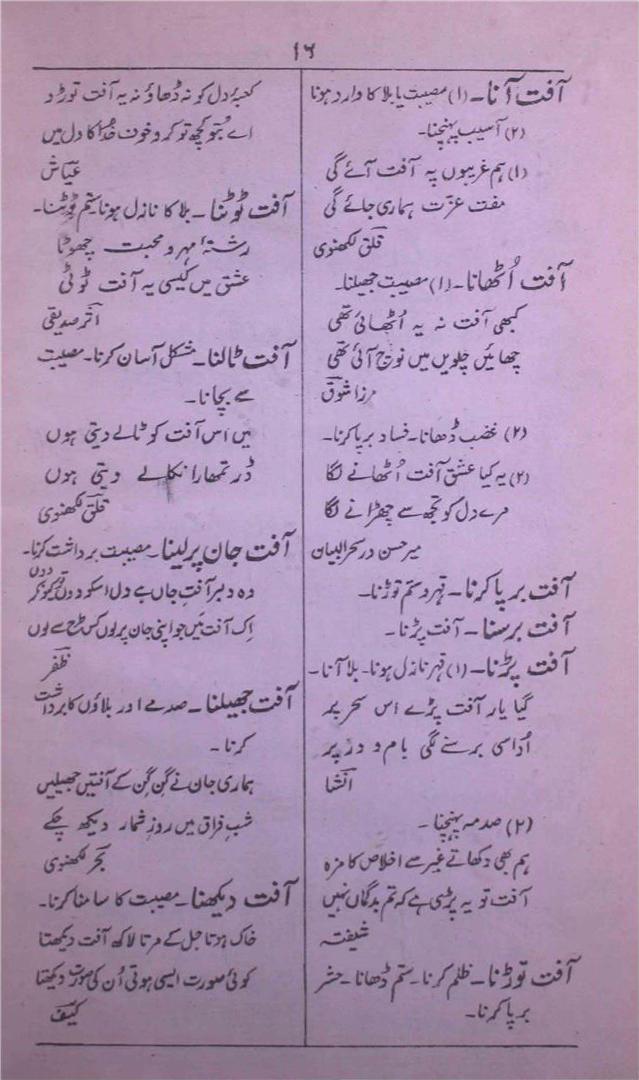 ۱۶
آفت آنا۔ (۱) مصیبت یا بلا کا وارد ہونا
(۲) آسیب پہنچنا۔
(۱) ہم غریبوں پہ آفت آئے گی
مفت عزت ہماری جائے گی
قلق لکھنوی
آفت اُٹھانا۔ (۱) مصیبت جھیلنا۔
کبھی آفت نہ یہ اُٹھائی تھی
چھائیں چلویں میں نوج آئی تھی
مرزا شوق
(۲) غضب ڈھانا۔ فساد برپا کرنا۔
(۲) یہ کیا عشق آفت اُٹھانے لگا
مرے دل کو تجھ سے چھڑانے لگا
میر حسن در سحر البیان
آفت برپا کرنا۔ قہر و ستم توڑنا۔
آفت برسنا۔ آفت پڑنا۔
آفت پڑنا۔ (۱) قہر نازل ہونا۔ بلا آنا۔
گیا یار آفت پڑے اس سحر پر
اُداسی برسنے لگی بام و در پر
انشا
(۲) صدمہ پہنچنا۔
ہم بھی دکھاتے غیر سے اخلاص کا مزہ
آفت تو یہ پڑی ہے کہ تم بدگماں نہیں
شیفتہ
آفت توڑنا۔ ظلم کرنا۔ ستم ڈھانا۔ حشر
برپا کرنا۔
کعبۂ دل کو نہ ڈھاؤ نہ یہ آفت توڑو
اے بتو کچھ تو کرو خون خدا کا دل میں
عیاش
آفت ٹوٹنا۔ بلا کا نازل ہونا ستم ٹوٹنا۔
رشتۂ مہر و محبت چھوٹا
عشق میں کیسی یہ آفت ٹوٹی
اثر صدیقی
آفت ٹالنا۔ مشکل آسان کرنا۔ مصیبت
سے بچانا۔
میں اس آفت کو ٹالے دیتی ہوں
ڈر تمھارا نکالے دیتی ہوں
قلق لکھنوی
آفت جان پر لینا۔ مصیبت برداشت کرنا۔
وہ دلبر آفتِ جاں ہے دل اسکو دوں تو کیونکر دوں
اِک آفت میں جو اپنی جان پر لوں کس طرح سے لوں
ظفر
آفت جھیلنا۔ صدمے اور بلاؤں کا برداشت
کرنا۔
ہماری جان نے گِن گِن کے آفتیں جھیلیں
شبِ فراق میں روزِ شمار دیکھ چکے
بحر لکھنوی
آفت دیکھنا۔ مصیبت کا سامنا کرنا۔
خاک ہوتا جل کے مرتا لاکھ آفت دیکھتا
کوئی صورت ایسی ہوتی اُن کی صورت دیکھتا
کیف